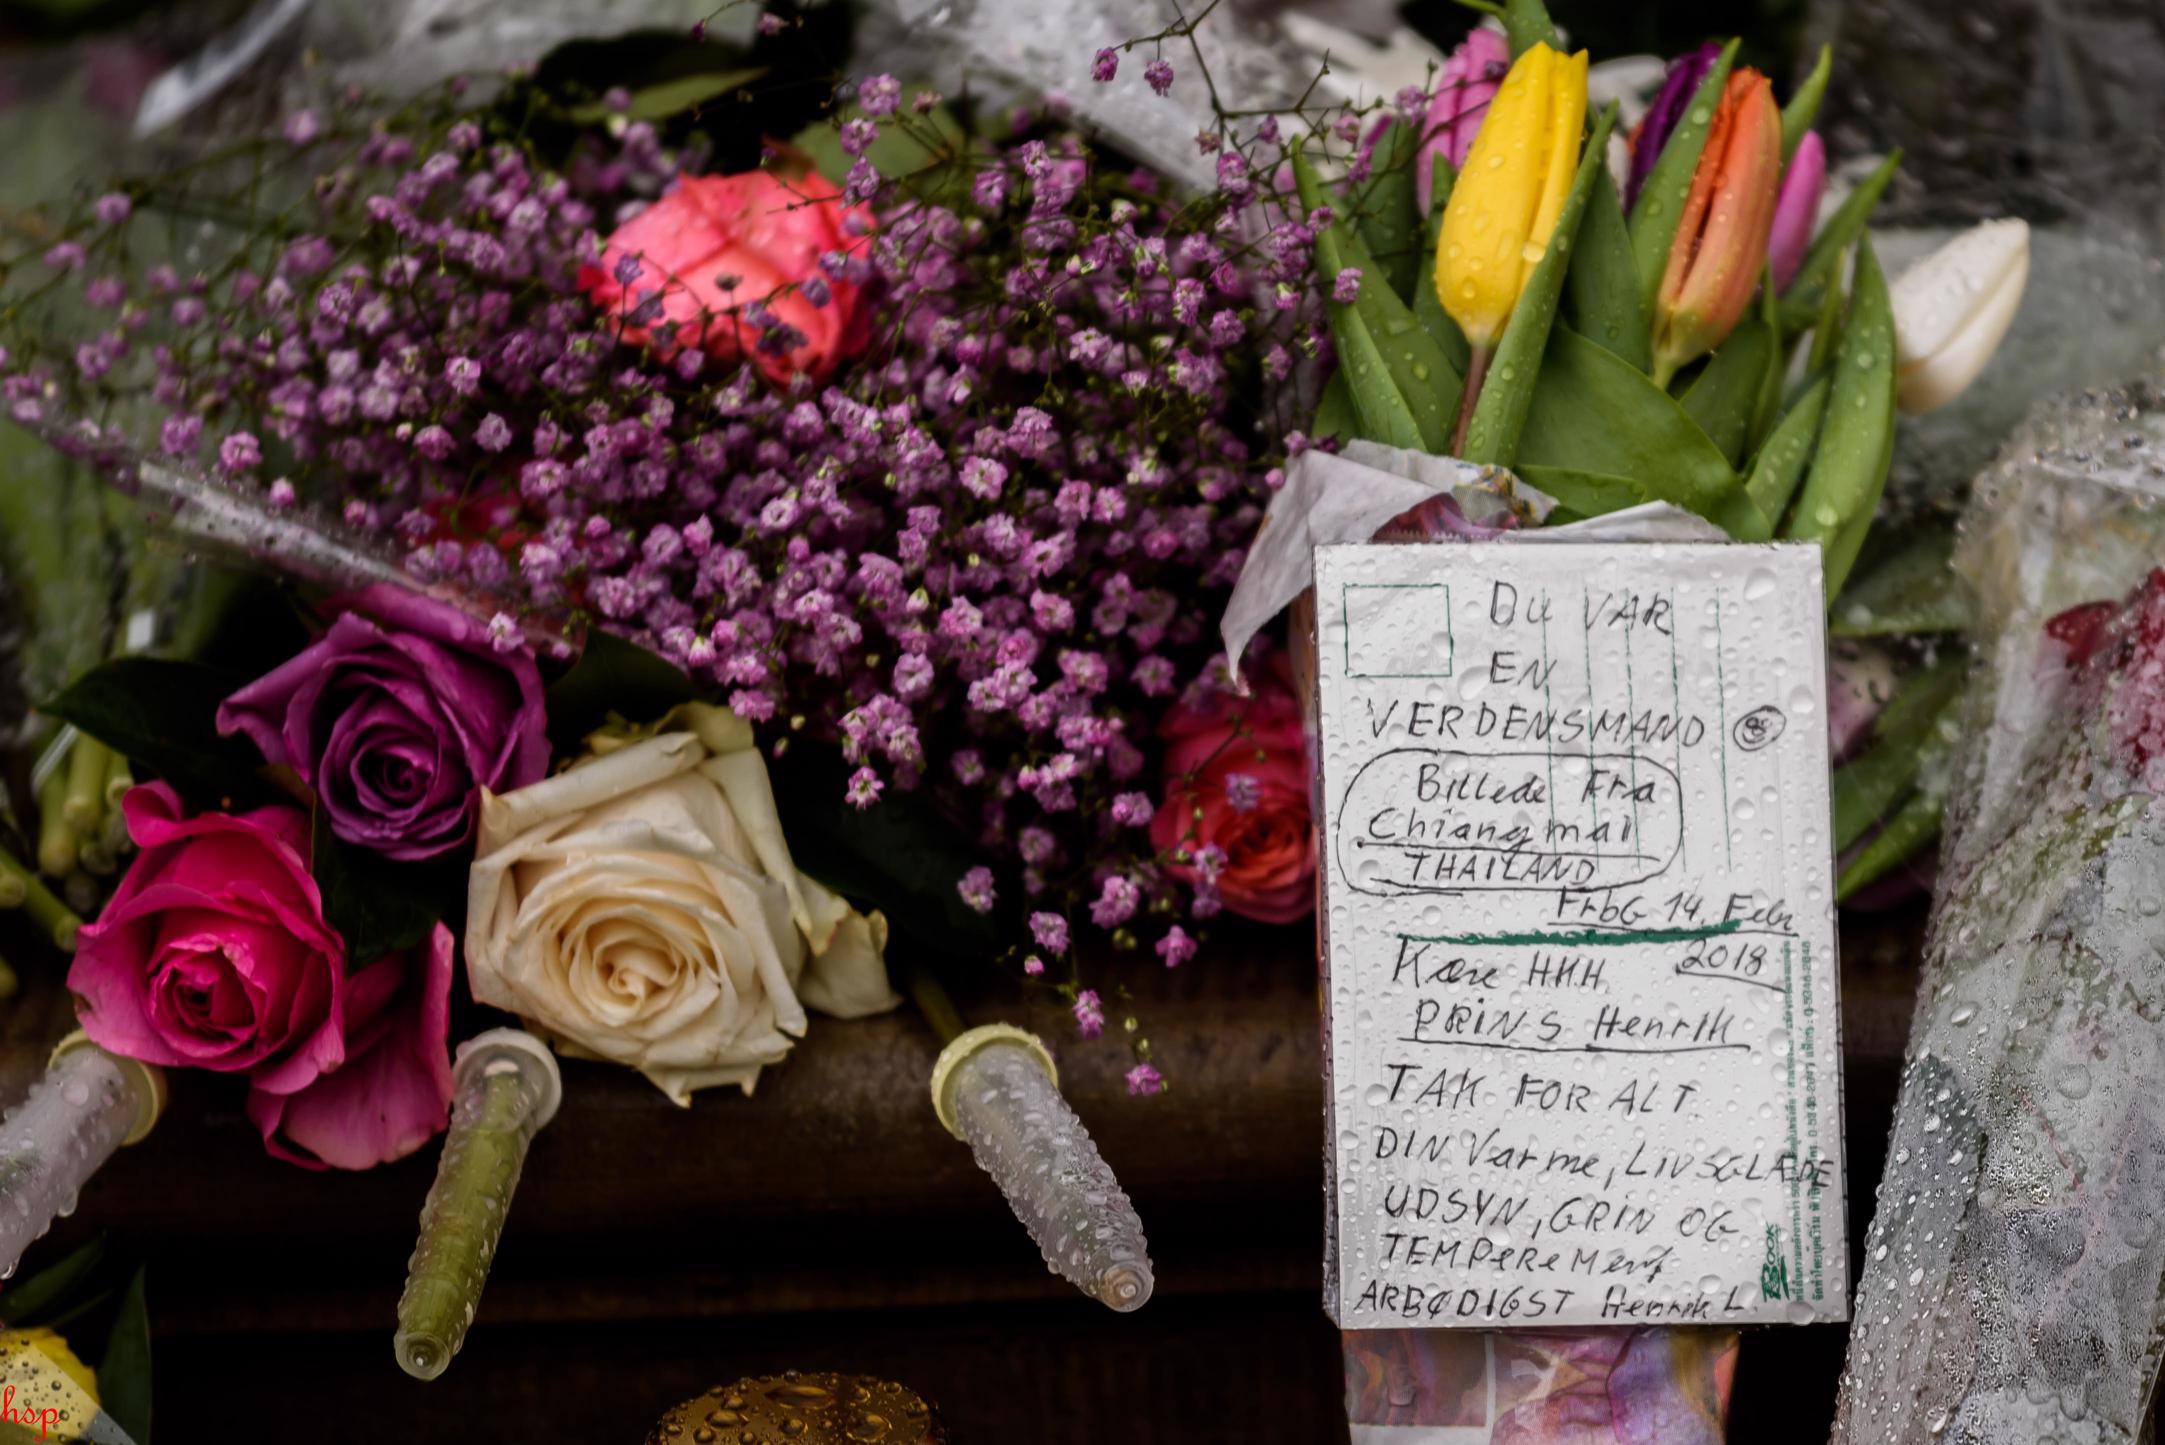 Du VAR
EN
VERDENSMAND
Billede Fra
Chiangmai
THAILAND
FrbG 14. Febr
2018
Kære HKH.
PRINS Henrik
TAK FOR ALT.
DIN Varme, LIVSGLÆDE
UDSYN, GRIN OG
TEMPEREMENT
ARBØDIGST Henrik L.
BOOK
hsp